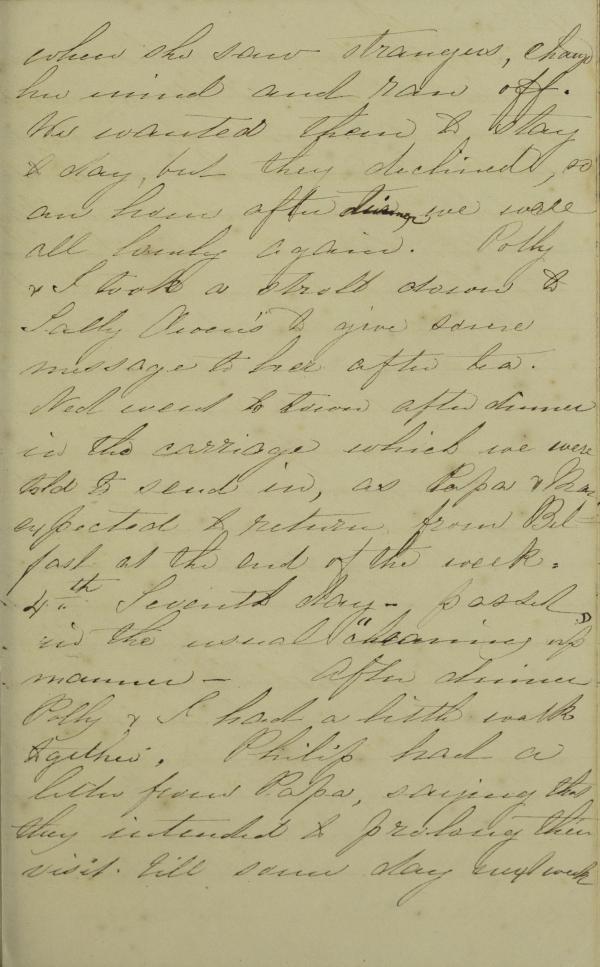 when she saw strangers, chang
her mind and ran off.
We wanted them to stay
to day, but they declined, so
an hour after dinner we were
all lonely again. Polly
& I took a stroll down to
Sally Owen's to give some
message to her after tea.
Ned went to town after dinner
in the carriage which we were
told to send in, as Papa &
expected to return from Bel-
fast at the end of the week.
4th Seventh day - passed
in the usual "cleaning up"
manner - After dinner
Polly & I had a little walk
together. Philip had a
letter from Papa, saying that
they intended to prolong their
visit till some day next week